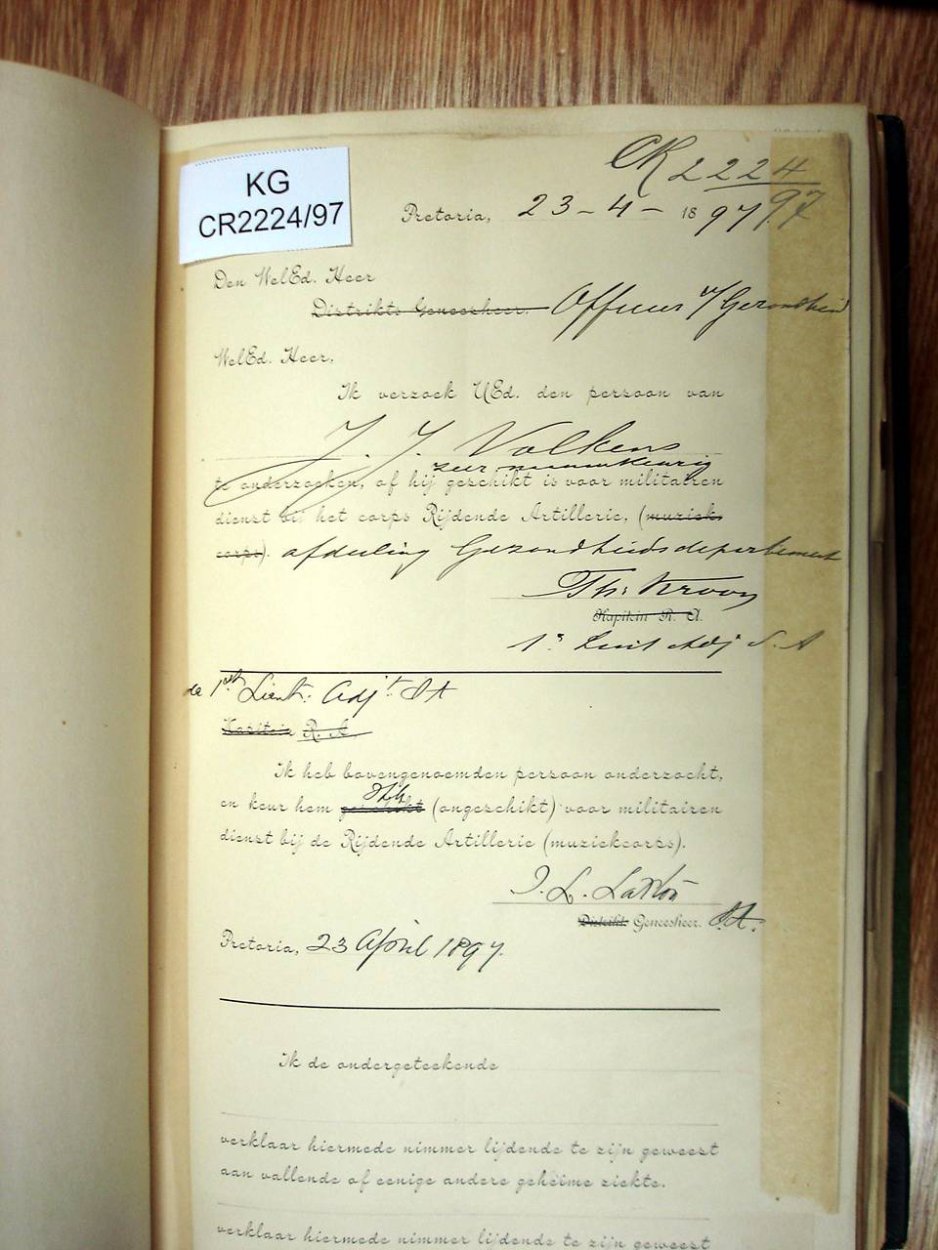 KG
CR2224/97
CR 2224
97
Pretoria, 23-4-1897
Den WelEd. Heer
Distrikts Geneesheer. Officier v/ Gezondheid
WelEd. Heer,
Ik verzoek UEd. den persoon van
J. J. Volkens
zeer nauwkeurig
te onderzoeken, of hij geschikt is voor militairen
dienst bij het corps Rijdende Artillerie, (muziek-
corps). afdeeling Gezondheidsdepartement
Th: Kroon
Kapitein R. A.
1e Luit Adj S. A
de 1ste Lieut: Adjt. SA
Kapitein R. A.
Ik heb bovengenoemden persoon onderzocht,
en keur hem geschikt (ongeschikt) voor militairen
dienst bij de Rijdende Artillerie (muziekcorps).
Distrikt Geneesheer. S.A.
Pretoria, 23 April 1897.
Ik de ondergeteekende
verklaar hiermede nimmer lijdende te zijn geweest
aan vallende of eenige andere geheime ziekte.
verklaar hiermede nimmer lijdende te zijn geweest